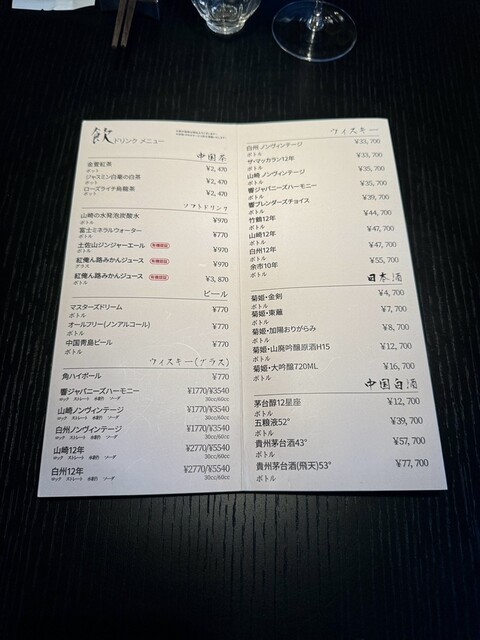 飲 ドリンク メニュー
中国茶
金萱紅茶 ¥2,470
ポット
ジャスミン白竜の白茶 ¥2,470
ポット
ローズライチ烏龍茶 ¥2,470
ポット
ソフトドリンク
山崎の水発泡炭酸水 ¥970
ボトル
富士ミネラルウォーター ¥770
ボトル
土佐山ジンジャーエール 有機認証 ¥970
ボトル
紅俺ん路みかんジュース 有機認証 ¥970
グラス
紅俺ん路みかんジュース 有機認証 ¥3,870
ボトル
ビール
マスターズドリーム ¥770
ボトル
オールフリー(ノンアルコール) ¥770
ボトル
中国青島ビール ¥770
ボトル
ウィスキー(グラス)
角ハイボール ¥770
響ジャパニーズハーモニー ¥1770/¥3540
ロック ストレート 水割り ソーダ 30cc/60cc
山崎ノンヴィンテージ ¥1770/¥3540
ロック ストレート 水割り ソーダ 30cc/60cc
白州ノンヴィンテージ ¥1770/¥3540
ロック ストレート 水割り ソーダ 30cc/60cc
山崎12年 ¥2770/¥5540
ロック ストレート 水割り ソーダ 30cc/60cc
白州12年 ¥2770/¥5540
ロック ストレート 水割り ソーダ 30cc/60cc
ウィスキー
白州 ノンヴィンテージ ¥33,700
ボトル
ザ・マッカラン12年 ¥33,700
ボトル
山崎 ノンヴィンテージ ¥35,700
ボトル
響ジャパニーズハーモニー ¥35,700
ボトル
響ブレンダーズチョイス ¥39,700
ボトル
竹鶴12年 ¥44,700
ボトル
山崎12年 ¥47,700
ボトル
白州12年 ¥47,700
ボトル
余市10年 ¥55,700
ボトル
日本酒
菊姫・金剣 ¥4,700
ボトル
菊姫・東籬 ¥7,700
ボトル
菊姫・加陽おりがらみ ¥8,700
ボトル
菊姫・山廃吟醸原酒H15 ¥12,700
ボトル
菊姫・大吟醸720ML ¥16,700
ボトル
中国白酒
茅台醇12星座 ¥12,700
ボトル
五粮液52° ¥39,700
ボトル
貴州茅台酒43° ¥57,700
ボトル
貴州茅台酒(飛天)53° ¥77,700
ボトル